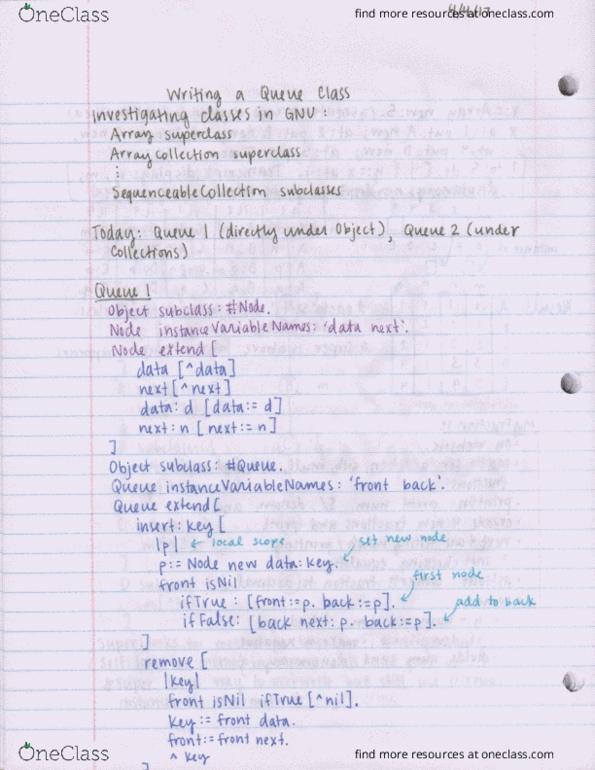 OneClass
find more resources at oneclass.com
Writing a Queue Class
Investigating classes in GNU:
Array superclass
ArrayCollection superclass
:
SequenceableCollection subclasses
Today: Queue 1 (directly under Object), Queue 2 (under
Collections)
Queue 1
Object subclass: #Node.
Node instanceVariableNames: 'data next'.
Node extend [
data [^data]
next [^next]
data: d [data:= d]
next: n [next:= n]
]
Object subclass: #Queue.
Queue instanceVariableNames: 'front back'.
Queue extend [
insert: key [
|p| ← local scope
set new node
p:= Node new data: key.
front isNil
first node
ifTrue: [front:=p. back:=p].
add to back
ifFalse: [back next: p. back:=p].
]
remove [
|key|
front isNil ifTrue [^nil].
key:= front data.
front:= front next.
^ key
]
OneClass
find more resources at oneclass.com